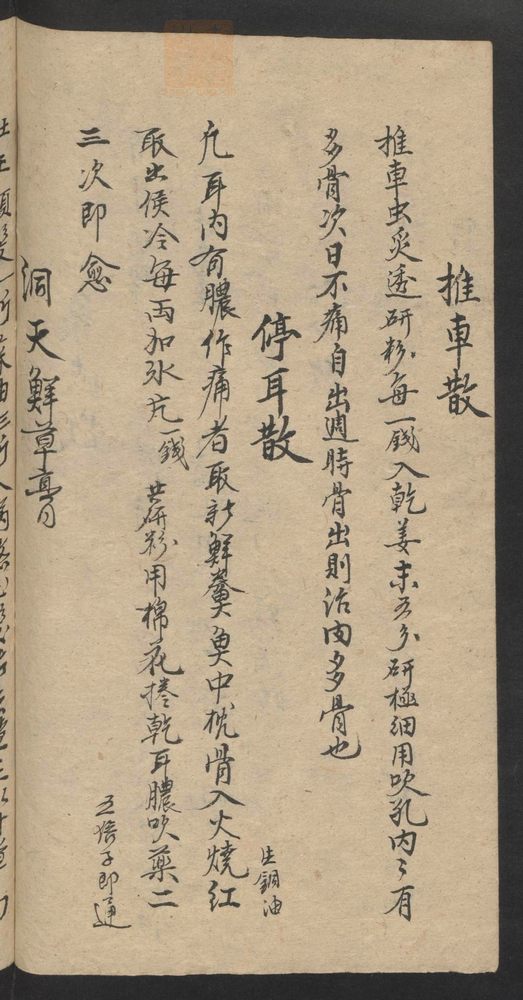 推車散
推車虫炙透研粉每一錢入乾姜末五分研極細用吹孔內〻有
多骨次日不痛自出週時骨出則治內多骨也
停耳散
生銅油
凢耳內有膿作痛者取新鮮糞臭中枕骨入火燒紅
取出候冷每兩加氷片一錢 共研粉用棉花捲乾耳膿吹藥二
三次即愈
五倍子即通
洞天鮮草膏